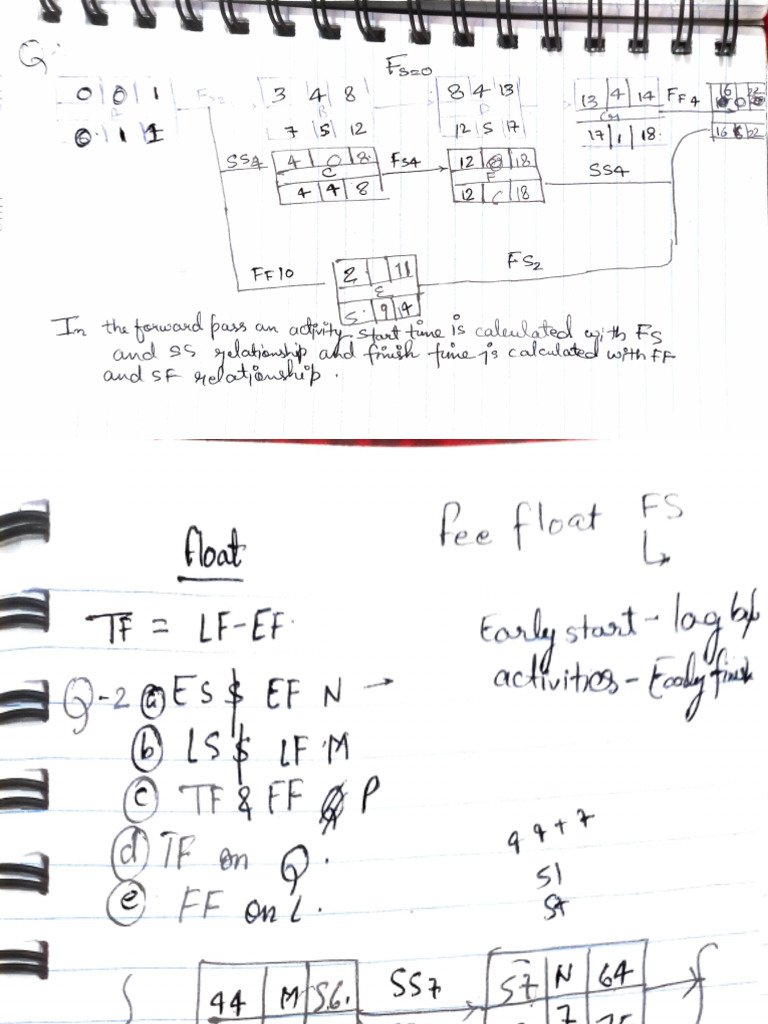 Q.
FS=0
0 0 1 FS2 3 4 8 8 4 13 13 4 14 FF4 16 0 22
A B D G
0 1 1 7 5 12 12 5 17 17 1 18 16 22
SS4 4 0 8 FS4 12 18 SS4
C F
4 4 8 12 18
FF10 2 11 FS2
E
5 9 4
In the forward pass an activity start time is calculated with FS
and SS relationship and finish time is calculated with FF
and SF relationship.
float
fee float FS
TF = LF-EF
Early start - lag b/w
activities - Early finish
Q-2 (a) ES $ EF N →
(b) LS $ LF M
(c) TF & FF P
(d) TF on Q.
(e) FF on L.
44+7
51
57
44 M 56. SS7 57 N 64
7